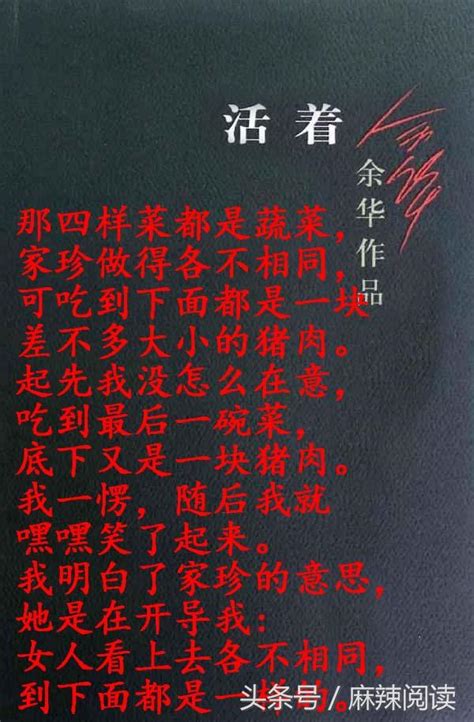 活着
余华
余华作品
那四样菜都是蔬菜，
家珍做得各不相同，
可吃到下面都是一块
差不多大小的猪肉。
起先我没怎么在意，
吃到最后一碗菜，
底下又是一块猪肉。
我一愣，随后我就
嘿嘿笑了起来。
我明白了家珍的意思，
她是在开导我：
女人看上去各不相同，
到下面都是一样的。
头条号 / 麻辣阅读